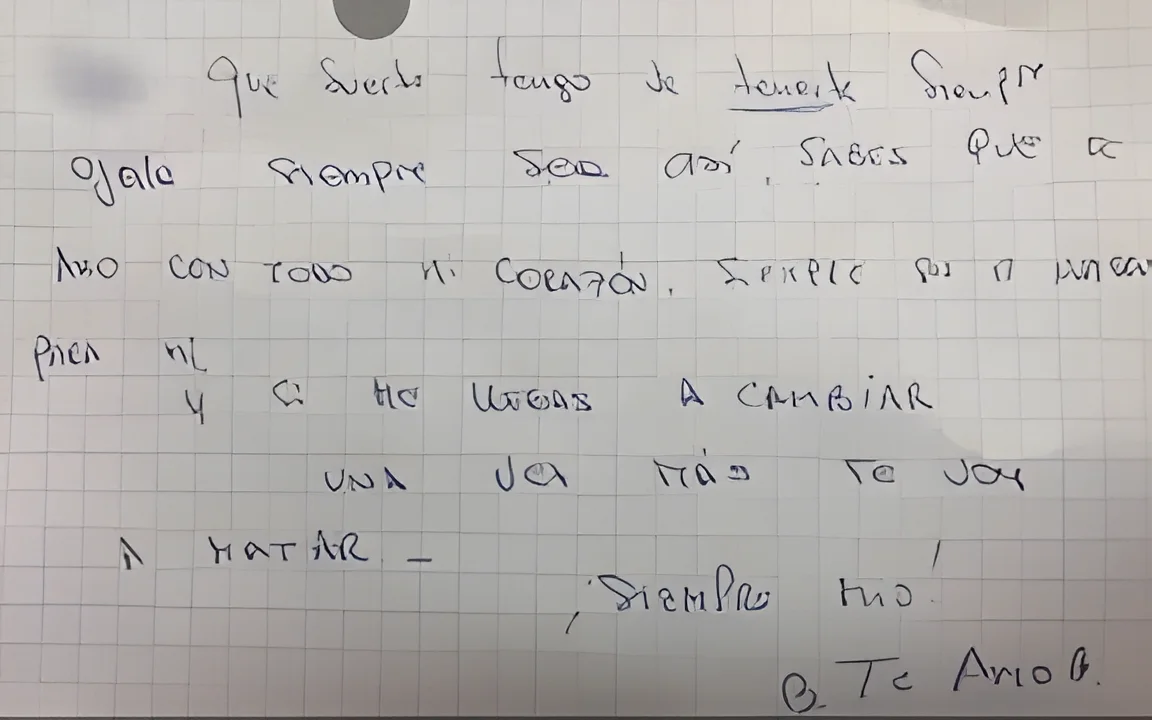 Que suerte tengo de tenerte siempr
Ojala siempre sea así, SABES QUE TE
AMO CON TODO MI CORAZÓN. SIEMPRE
PARA MI
Y SI ME LLEGAS A CAMBIAR
UNA VEZ MÁS TE VOY
A MATAR _
¡SIEMPRE MIO!
B. TE AMO B.